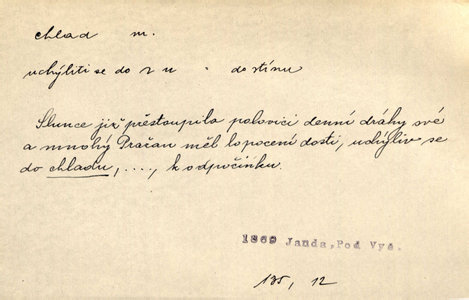 chlad m.
uchýliti se do do stínu
Slunce již přestoupilo polovici denní dráhy své
a mnohý Pražan měl lopocení dosti, uchýliv se
do chladu, ...., k odpočinku.
1869 Janda, Pod Vyš.
135, 12